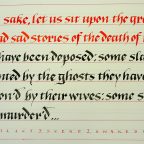 sake, let us sit upon the gro
sad stories of the death of
have been deposed; some sla
ed by the ghosts they have
on'd by their wives: some s
murder'd...